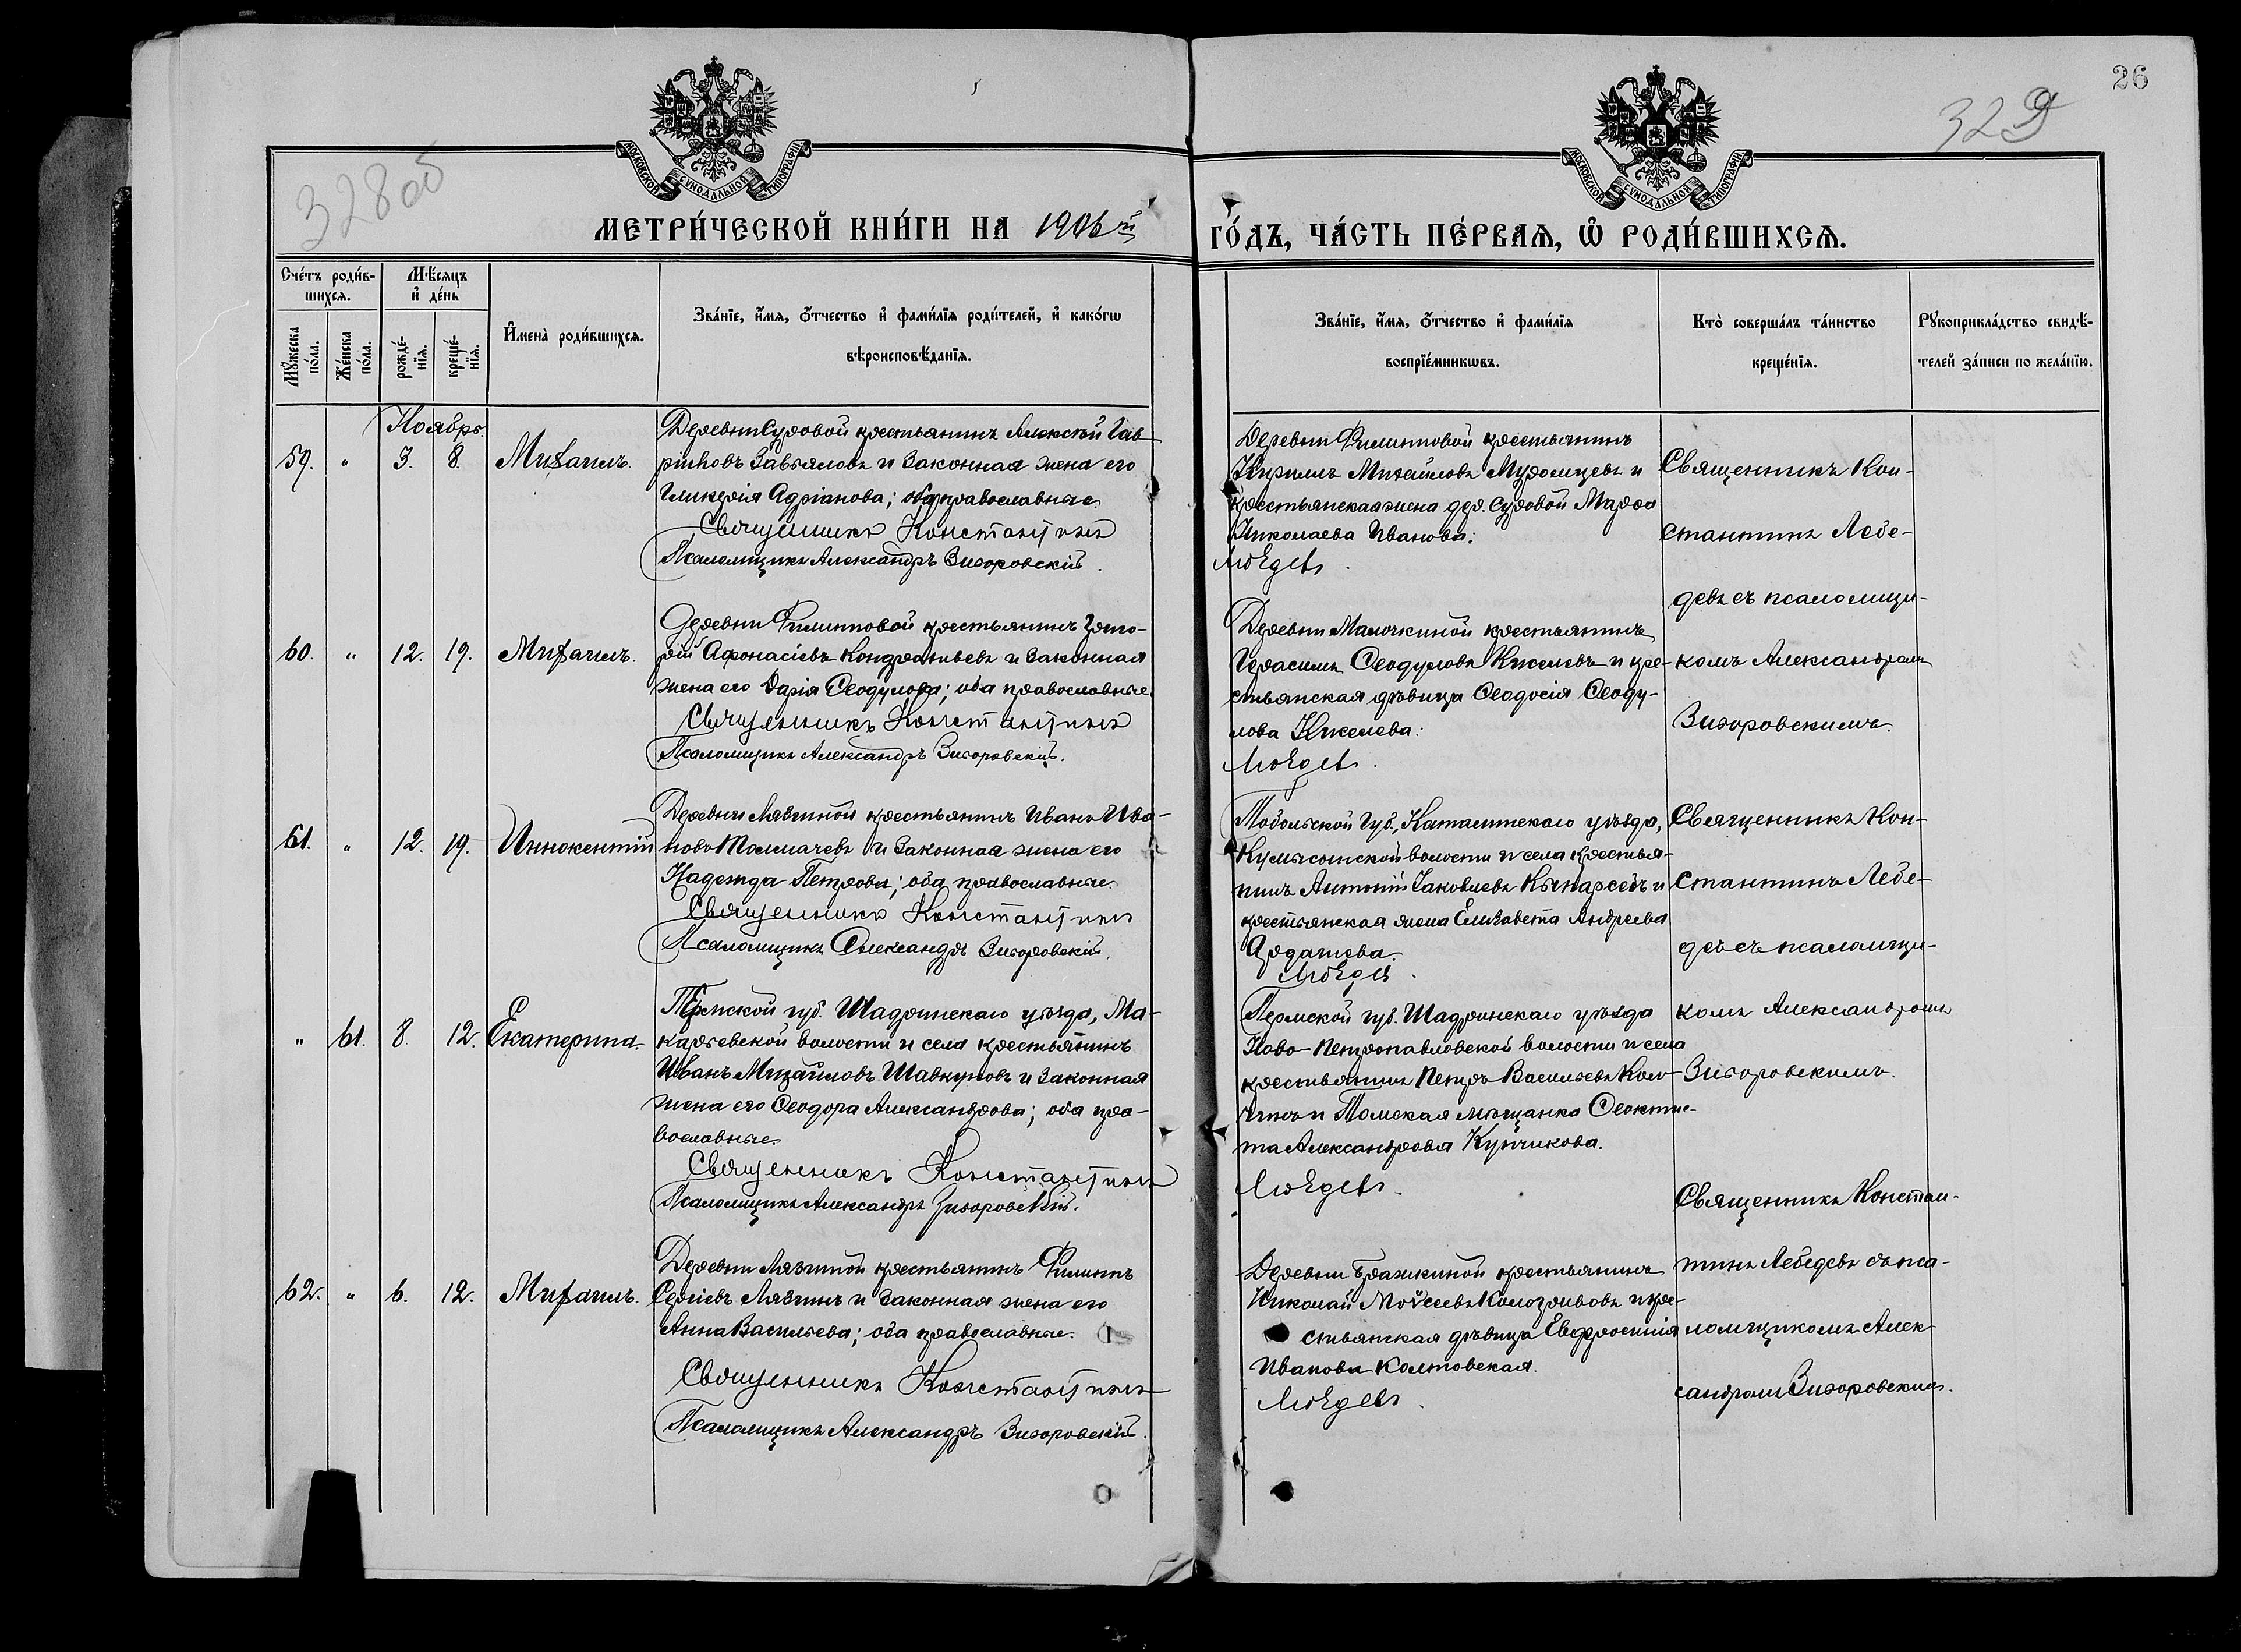 26
328 об
329
МОСКОВСКОЙ СУНОДАЛЬНОЙ ТИПОГРАФІИ
МОСКОВСКОЙ СУНОДАЛЬНОЙ ТИПОГРАФІИ
МЕТРИ́ЧЕСКОЙ КНИ́ГИ НА 1906 й
ГО́ДЪ, ЧА́СТЬ ПЕ́РВАѦ, Ѡ҆ РОДИ́ВШИХСѦ.
Сче́тъ роди́в-
шихсѧ.
Мꙋ́жеска по́ла.
Же́нска по́ла.
Мѣ́сѧцъ
и҆ де́нь
рожде́-
нїѧ.
креще́-
нїѧ.
И҆мена̀ роди́вшихсѧ.
Зва́нїе, и҆́мѧ, ѻ҆́тчество и҆ фами́лїѧ роди́телей, и҆ како́гѡ
вѣроисповѣ́данїѧ.
Зва́нїе, и҆́мѧ, ѻ҆́тчество и҆ фами́лїѧ
воспрїе́мникѡвъ.
Кто̀ соверша́лъ та́инство
креще́нїѧ.
Рꙋкоприкла́дство свидѣ́-
телей за́писи по жела́нїю.
Ноябрь.
59. " 3. 8. Михаилъ.
Деревни Суровой крестьянинъ Алексѣй Гав-
риловъ Завьяловъ и законная жена его
Гликерія Адріанова; оба православные.
Священникъ Константинъ
Псаломщикъ Александръ
Деревни Филипповой крестьянинъ
Кириллъ Михайловъ Муромцевъ и
крестьянская жена дер. Суровой Марѳа
Николаева Иванова.
Лебедевъ.
Священникъ Кон-
стантинъ Лебе-
девъ съ псаломщи-
комъ Александромъ
60. " 12. 19. Михаилъ.
Деревни Филипповой крестьянинъ Григо-
рій Афонасіевъ Кондратьевъ и законная
жена его Дарія Ѳеодулова; оба православные.
Священникъ Константинъ
Псаломщикъ Александръ
Деревни крестьянинъ
Герасимъ Ѳеодуловъ Киселевъ и кре-
стьянская дѣвица Ѳеодосія Ѳеоду-
лова Киселева.
Лебедевъ.
61. " 12. 19. Иннокентій
Деревни Лявиной крестьянинъ Иванъ Ива-
новъ Толмачевъ и законная жена его
Надежда Петрова; оба православные.
Священникъ Константинъ
Псаломщикъ Александръ
Тобольской губ., уѣзда,
волости и села крестья-
нинъ Антоній Іаковлевъ и
крестьянская жена Елизавета Андреева
Ардашова.
Лебедевъ.
Священникъ Кон-
стантинъ Лебе-
девъ съ псаломщи-
комъ Александромъ
" 61. 8. 12. Екатерина.
Пермской губ. Шадринскаго уѣзда, Ма-
карьевской волости и села крестьянинъ
Иванъ Михайловъ Шавкуновъ и законная
жена его Ѳеодора Александрова; оба пра-
вославные.
Священникъ Константинъ
Псаломщикъ Александръ
Пермской губ. Шадринскаго уѣзда
Ново-Петропавловской волости и села
крестьянинъ Петръ Васильевъ
и Томская мѣщанка Ѳеокти-
ста Александрова Купчикова.
Лебедевъ.
62. " 6. 12. Михаилъ.
Деревни Лявиной крестьянинъ Филиппъ
Сергіевъ Лявинъ и законная жена его
Анна Васильева; оба православные.
Священникъ Константинъ
Псаломщикъ Александръ
Деревни Бражкиной крестьянинъ
Николай Моѵсеевъ и кре-
стьянская дѣвица Евфросинія
Иванова Колтовская.
Лебедевъ.
Священникъ Констан-
тинъ Лебедевъ съ пса-
ломщикомъ Алек-
сандромъ